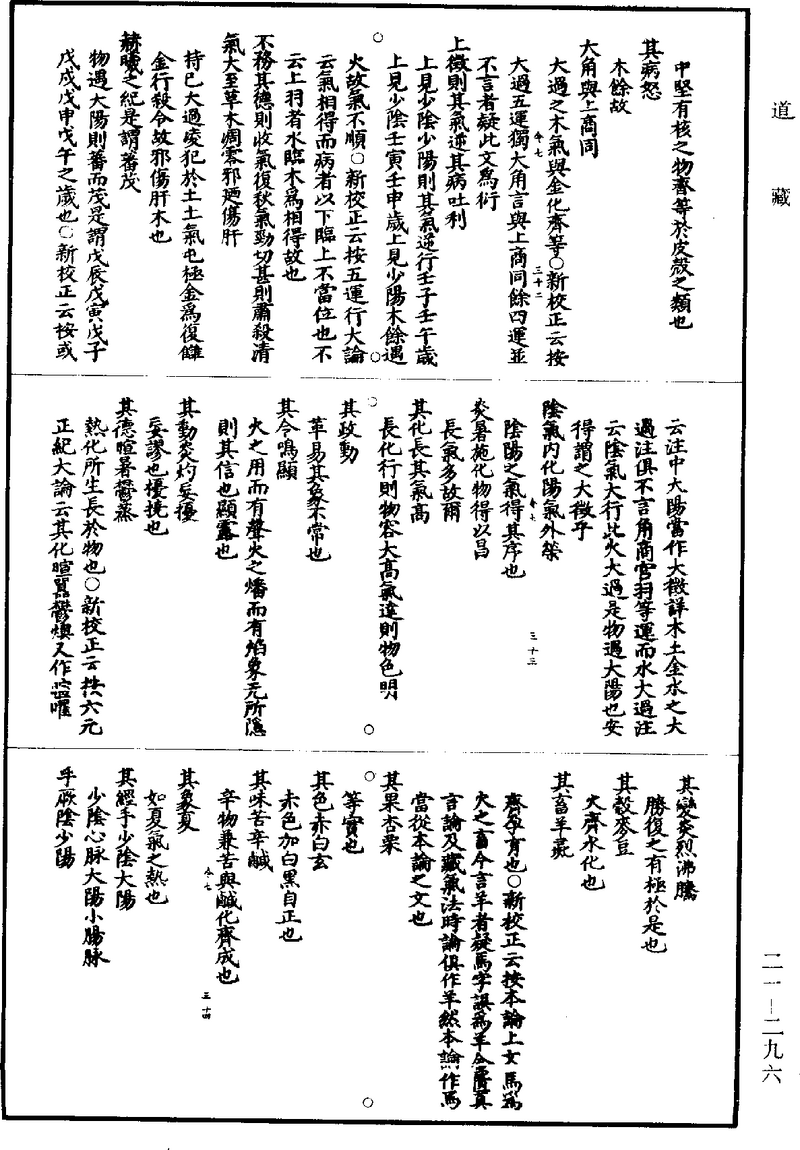 道藏
中堅有核之物齊等於皮殼之類也
其病怒
木餘故
大角與上商同
大過之木氣與金化齊等○新校正云按
大過五運獨大角言與上商同餘四運並
不言者疑此文爲衍
上徵則其氣逆其病吐利
上見少陰少陽則其氣逆行壬子壬午歲
上見少陰壬寅壬申歲上見少陽木餘遇
火故氣不順○新校正云按五運行大論
云氣相得而病者以下臨上不當位也不
云上羽者水臨木爲相得故也
不務其德則收氣復秋氣勁切甚則肅殺清
氣大至草木凋零邪廼傷肝
恃已大過凌犯於土土氣屯極金爲復讎
金行殺令故邪傷肝木也
赫曦之紀是謂蕃茂
物遇大陽則蕃而茂是謂戊辰戊寅戊子
戊戌戊申戊午之歲也○新校正云按或
卷七
三十二
云注中大陽當作大徵詳木土金水之大
過注俱不言角商宮羽等運而水大過注
云陰氣大行此火大過是物遇大陽也安
得謂之大徵乎
陰氣內化陽氣外榮
陰陽之氣得其序也
炎暑施化物得以昌
長氣多故爾
其化長其氣高
長化行則物容大高氣達則物色明
其政動
革易其象不常也
其令鳴顯
火之用而有聲火之燔而有焰象无所隱
則其信也顯露也
其動炎灼妄擾
妄謬也擾撓也
其德暄暑鬱蒸
熱化所生長於物也○新校正云按六元
正紀大論云其化暄囂鬱燠又作
卷七
三十三
其變炎烈沸騰
勝復之有極於是也
其穀麥豆
火齊水化也
其畜羊彘
齊孕育也○新校正云按本論上文馬爲
火之畜今言羊者疑馬字誤爲羊金匱真
言論及藏氣法時論俱作羊然本論作馬
當從本論之文也
其果杏栗
等實也
其色赤白玄
赤色加白黑自正也
其味苦辛鹹
辛物兼苦與鹹化齊成也
其象夏
如夏氣之熱也
其經手少陰大陽
少陰心脉大陽小腸脉
手厥陰少陽
卷七
三十四
二一—二九六